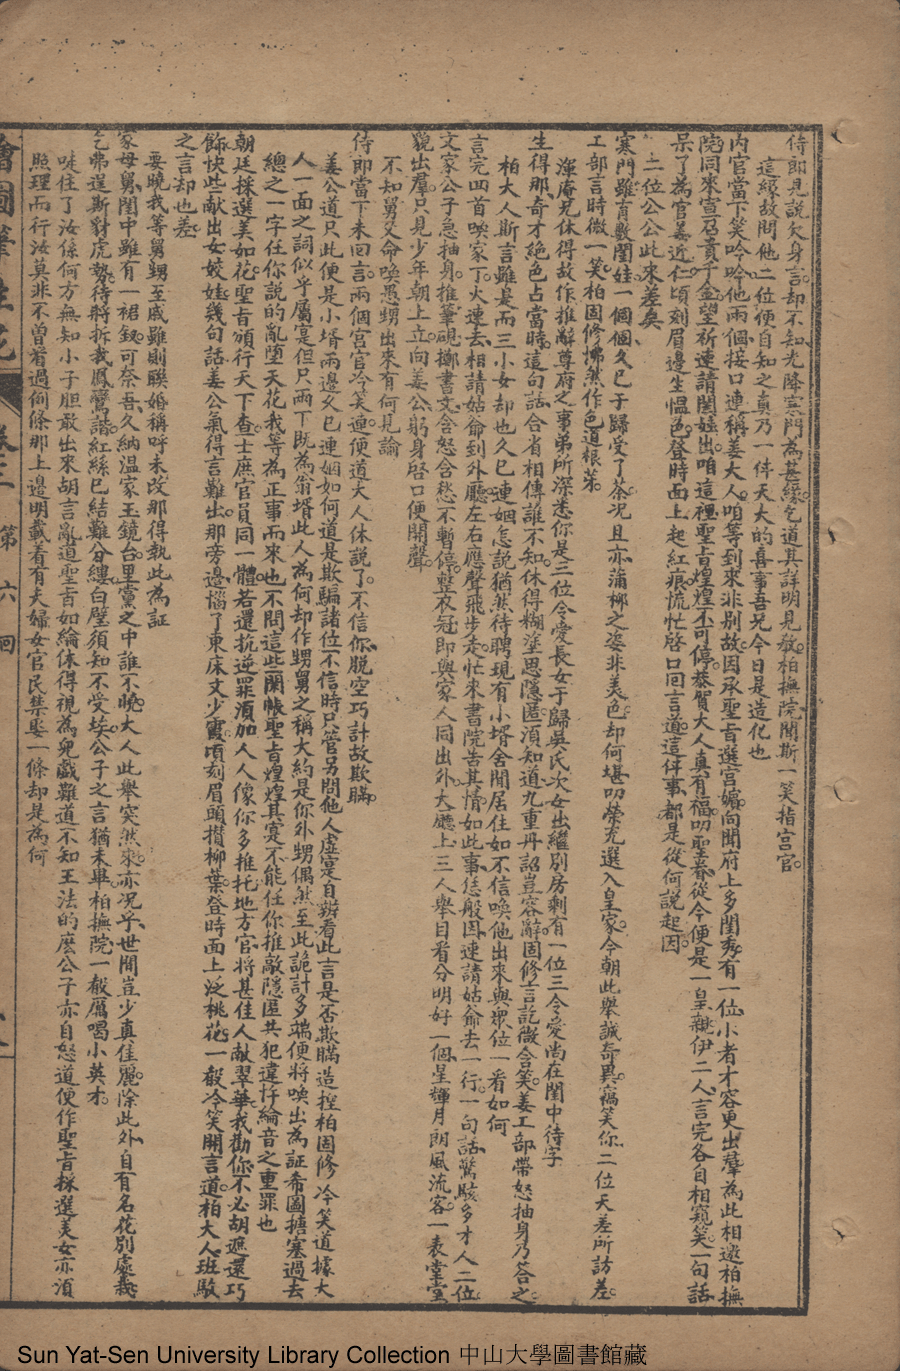 侍郎見說欠身言。却不知光降寒門為甚緣。乞道其詳明見教。柏撫院聞斯一笑指宫官。
這緣故問他二位便自知之真乃一件天大的喜事吾兄今日是造化也
内官當下笑吟吟他兩個接口連稱姜大人。咱等到來非別故。因承聖旨選宫嬪。向聞府上多閨秀。有一位小者才容更出羣。為此相邀柏撫
院。同來宣召貴千金。望祈速請閨娃出。咱這裡聖旨煌煌不可停。恭賀大人真有福。叨聖眷從今便是一皇親。伊二人言完各自相窺笑。一句話
呆了為官姜近仁。頃刻眉邊生愠色。登時面上起紅痕。慌忙啓口回言道。這件事都是從何説起因。
二位公公此來差矣
寒門雖有數閨娃。一個個久已于歸受了茶。况且亦蒲柳之姿非美色。却何堪叨榮充選入皇家。今朝此舉誠奇異。竊笑你二位天差所訪差。
工部言時微一笑。柏固修拂然作色道根芽。
渾庵兄休得故作推辭尊府之事弟所深悉你是三位令愛長女于歸吳氏次女出繼別房剩有一位三令愛尚在閨中待字
生得那奇才絕色占當時。這句話合省相傳誰不知。休得糊塗思隱匿。須知道九重丹詔豈容辭。固修言訖微含笑。姜工部帶怒抽身乃答之。
柏大人斯言雖是而三小女却也久已連姻怎説猶然待聘現有小壻舍間居住如不信喚他出來與眾位一看如何
言完回首喚家丁。火速去相請姑爺到外廳。左右應聲飛步走。忙來書院告其情。如此事恁般因。速請姑爺去一行。一句話驚駭多才人二位。
文家公子急抽身。推筆硯擲書文。含怒含愁不暫停。整衣冠即與家人同出外。大廳上三人舉目看分明。好一個星輝月朗風流客。一表堂堂
貌出羣。只見少年朝上立。向姜公躬身啓口便開聲。
不知舅父命喚愚甥出來有何見諭
侍郎當下未回言。兩個宫官冷笑連。便道大人休説了。不信你脱空巧計故欺瞞。
姜公道只此便是小壻兩邊久已連姻如何道是欺騙諸位不信時只管另問他人虛寔自辨看此言是否欺瞞造捏柏固修冷笑道據大
人一面之詞似乎屬寔但只兩下既為翁壻此人為何却作甥舅之稱大約是你外甥偶然至此詭計多端便將喚出為証希圖搪塞過去
總之一字任你說的亂墮天花我等為正事而來也不問這些閑帳聖旨煌煌其寔不能任你推敲隱匿共犯違忤綸音之重罪也
朝廷採選美如花。聖旨頒行天下查。士庶官員同一體。若還抗逆罪須加。人人像你多推托。地方官將甚佳人献翠華。我勸你不必胡遮還巧
飾。快些献出女姣娃。幾句話姜公氣得言難出。那旁邊惱了東床文少霞。頃刻眉頭攢柳葉。登時面上泛桃花。一般冷笑開言道。柏大人班駁
之言却也差
要曉我等舅甥至戚雖則聯婚稱呼未改那得執此為証
家母舅閨中雖有一裙釵。可奈吾久納温家玉鏡台。里黨之中誰不曉。大人此舉突然來。亦况乎世間豈少真佳麗。除此外自有名花別處栽。
乞弗逞斯豺虎勢。待將拆我鳳鸞諧。紅絲已結難分縷。白壁須知不受埃。公子之言猶未畢。柏撫院一般厲喝小英才。
唗住了汝係何方無知小子胆敢出來胡言亂道聖旨如綸休得視為兒戲難道不知王法的麽公子亦自怒道便作聖旨採選美女亦須
照理而行汝莫非不曾看過例條那上邊明載着有夫婦女官民禁娶一條却是為何
繪圖筆生花 卷三 第六回